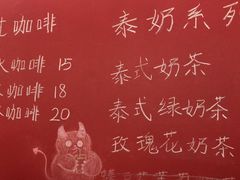 咖啡
泰奶系列
咖啡 15
泰式奶茶
咖啡 18
泰式绿奶茶
咖啡 20
玫瑰花奶茶